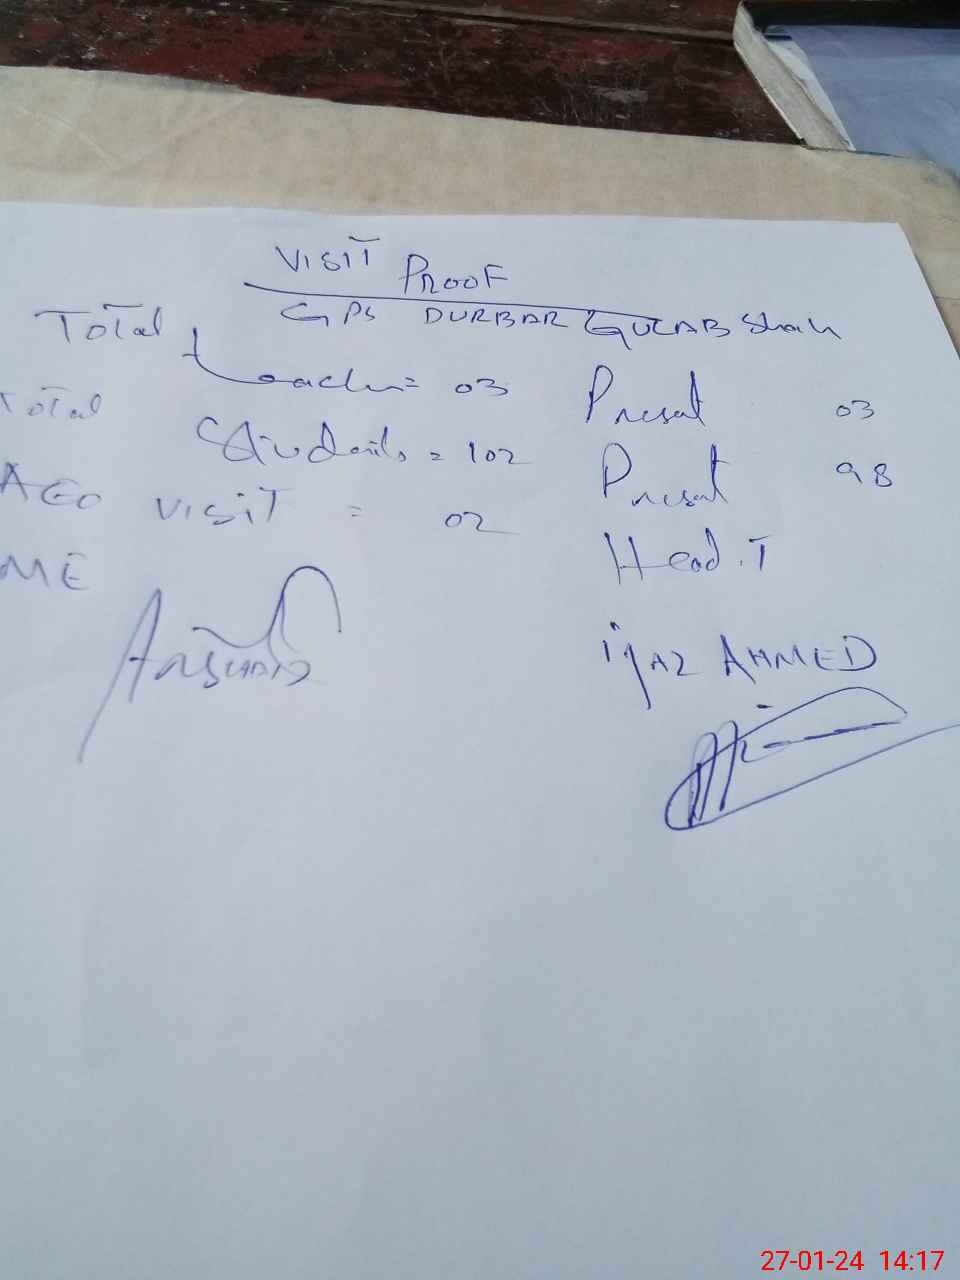 VISIT PROOF
GPS DURBAR GULAB Shah
Total teacher = 03 Present 03
Total Students = 102 Present 98
AEO VISIT = 02 Head.T
ME
ijaz AHMED
27-01-24 14:17